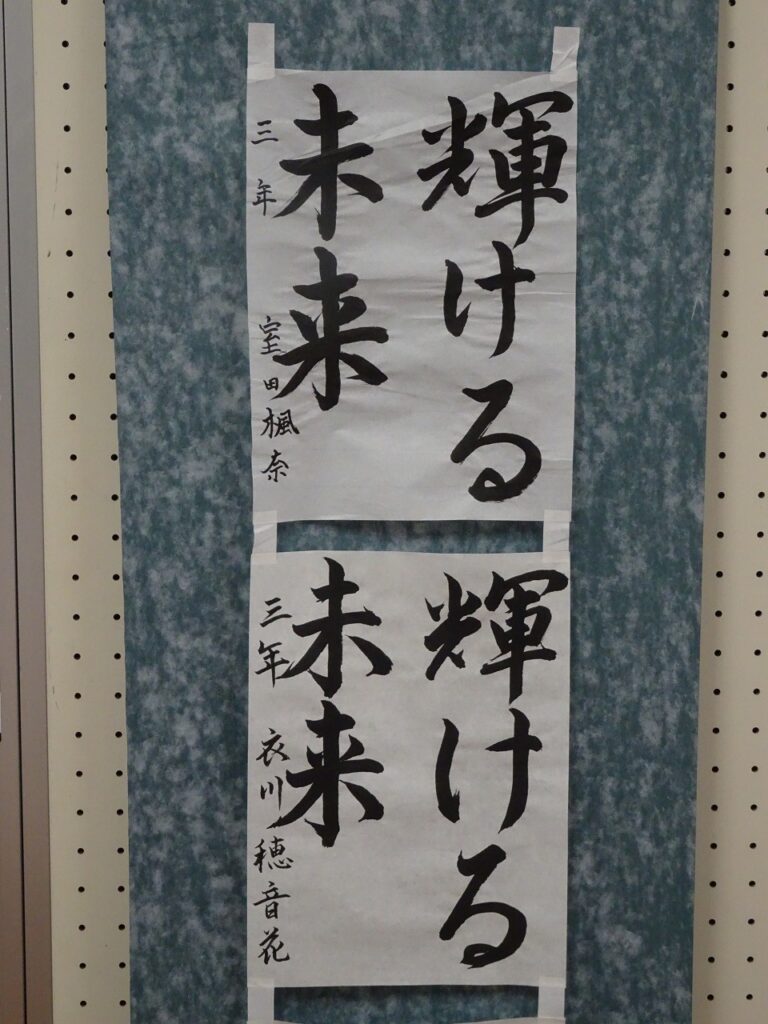 輝ける
未来
三年 室田楓奈
輝ける
未来
三年 衣川穂音花